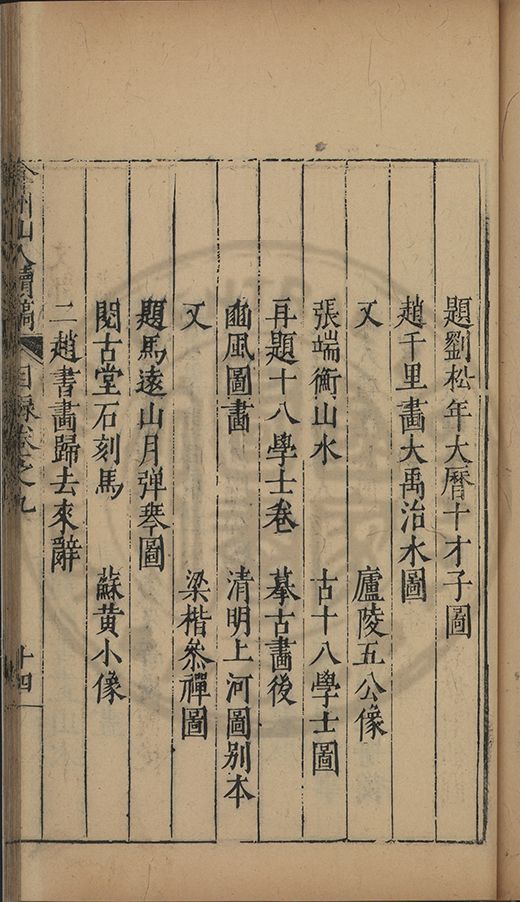 題劉松年大曆十才子圖
趙千里畫大禹治水圖
又　廬陵五公像
張端衡山水　古十八學士圖
再題十八學士卷　摹古畫後
豳風圖畫　清明上河圖別本
又　梁楷叅禪圖
題馬遠山月弹琴圖
閱古堂石刻馬　蘇黄小像
二趙書畫歸去來辭
弇州山人續稿　目錄卷之九　十四